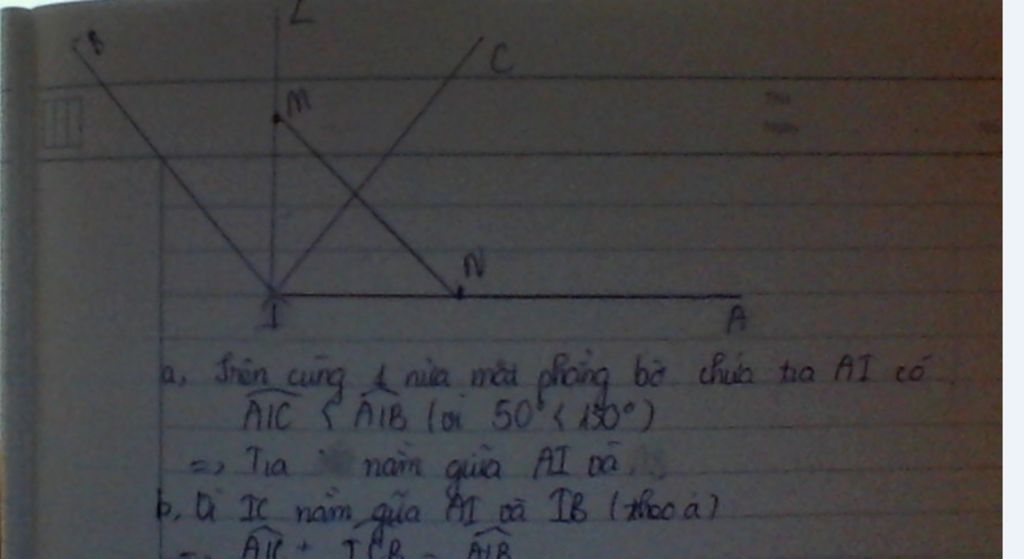 B
L
C
M
N
I
A
a, Trên cùng 1 nửa mặt phẳng bờ chứa tia AI có
AIC < AIB (vì 50° < 130°)
=> Tia nằm giữa AI và
b, Vì IC nằm giữa AI và IB (theo a)
=> AIC + ICB = AIB